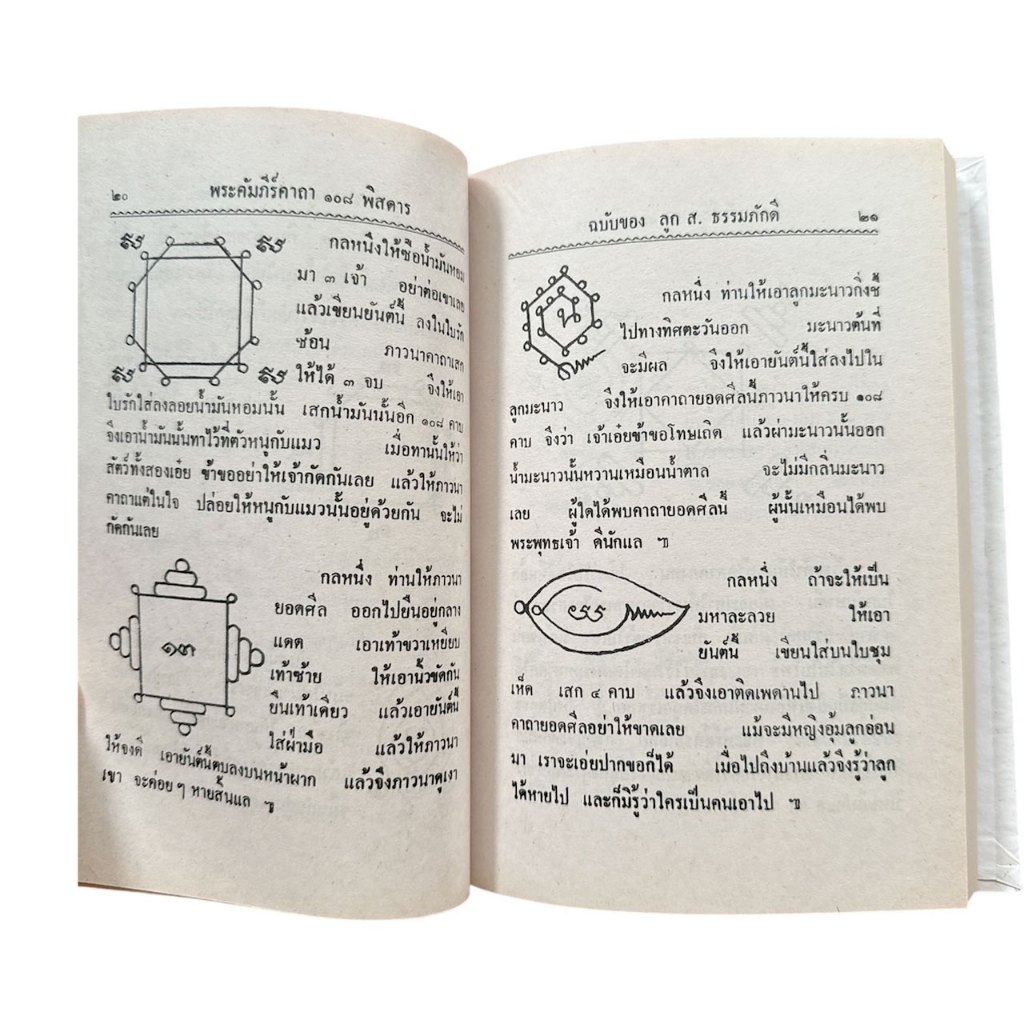 ๒๐ พระคัมภีร์คาถา ๑๐๘ พิสดาร
กลหนึ่งให้ซื้อน้ำมันหอม
มา ๓ เจ้า อย่าต่อเขาเลย
แล้วเขียนยันต์นี้ ลงในใบรัก
ซ้อน ภาวนาคาถาเสก
ให้ได้ ๓ จบ จึงให้เอา
ใบรักใส่ลงลอยน้ำมันหอมนั้น เสกน้ำมันนั้นอีก ๑๐๘ คาบ
จึงเอาน้ำมันนั้นทาไว้ที่ตัวหนูกับแมว เมื่อทานั้นให้ว่า
สัตว์ทั้งสองเอ๋ย ข้าขออย่าให้เจ้ากัดกันเลย แล้วให้ภาวนา
คาถาแต่ในใจ ปล่อยให้หนูกับแมวนั้นอยู่ด้วยกัน จะไม่
กัดกันเลย
กลหนึ่ง ท่านให้ภาวนา
ยอดศีล ออกไปยืนอยู่กลาง
แดด เอาเท้าขวาเหยียบ
เท้าซ้าย ให้เอานิ้วขัดกัน
ยืนเท้าเดียว แล้วเอายันต์นี้
ใส่ฝ่ามือ แล้วให้ภาวนา
ให้จงดี เอายันต์นี้ตบลงบนหน้าผาก แล้วจึงภาวนาดูเงา
เขา จะค่อยๆ หายสิ้นแล ๚
๑๓
ฉบับของ ลูก ส. ธรรมภักดี ๒๑
กลหนึ่ง ท่านให้เอาลูกมะนาวกิ่งชี้
ไปทางทิศตะวันออก มะนาวต้นที่
จะมีผล จึงให้เอายันต์นี้ใส่ลงไปใน
ลูกมะนาว จึงให้เอาคาถายอดศีลนี้ภาวนาให้ครบ ๑๐๘
คาบ จึงว่า เจ้าเอ๋ยข้าขอโทษเถิด แล้วผ่ามะนาวนั้นออก
น้ำมะนาวนั้นหวานเหมือนน้ำตาล จะไม่มีกลิ่นมะนาว
เลย ผู้ใดได้พบคาถายอดศีลนี้ ผู้นั้นเหมือนได้พบ
พระพุทธเจ้า ดีนักแล ๚
น
กลหนึ่ง ถ้าจะให้เป็น
มหาละลวย ให้เอา
ยันต์นี้ เขียนใส่บนใบชุม
เห็ด เสก ๔ คาบ แล้วจึงเอาติดเพดานไป ภาวนา
คาถายอดศีลอย่าให้ขาดเลย แม้จะมีหญิงอุ้มลูกอ่อน
มา เราจะเอ่ยปากขอก็ได้ เมื่อไปถึงบ้านแล้วจึงรู้ว่าลูก
ได้หายไป และก็มิรู้ว่าใครเป็นคนเอาไป ๚